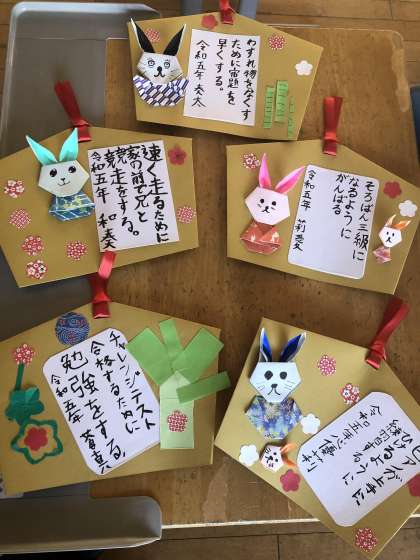 わすれ物をなくす
ために宿題を
早くする。
令和五年 奏太
速く走るために
家の前で兄と
競走をする。
令和五年 和奏
そろばん三級に
なるように
がんばる
令和五年
チャレンジテスト
合格するために
勉強をする。
令和五年
ピアノが上手に
ひけるように
練習する
令和五年